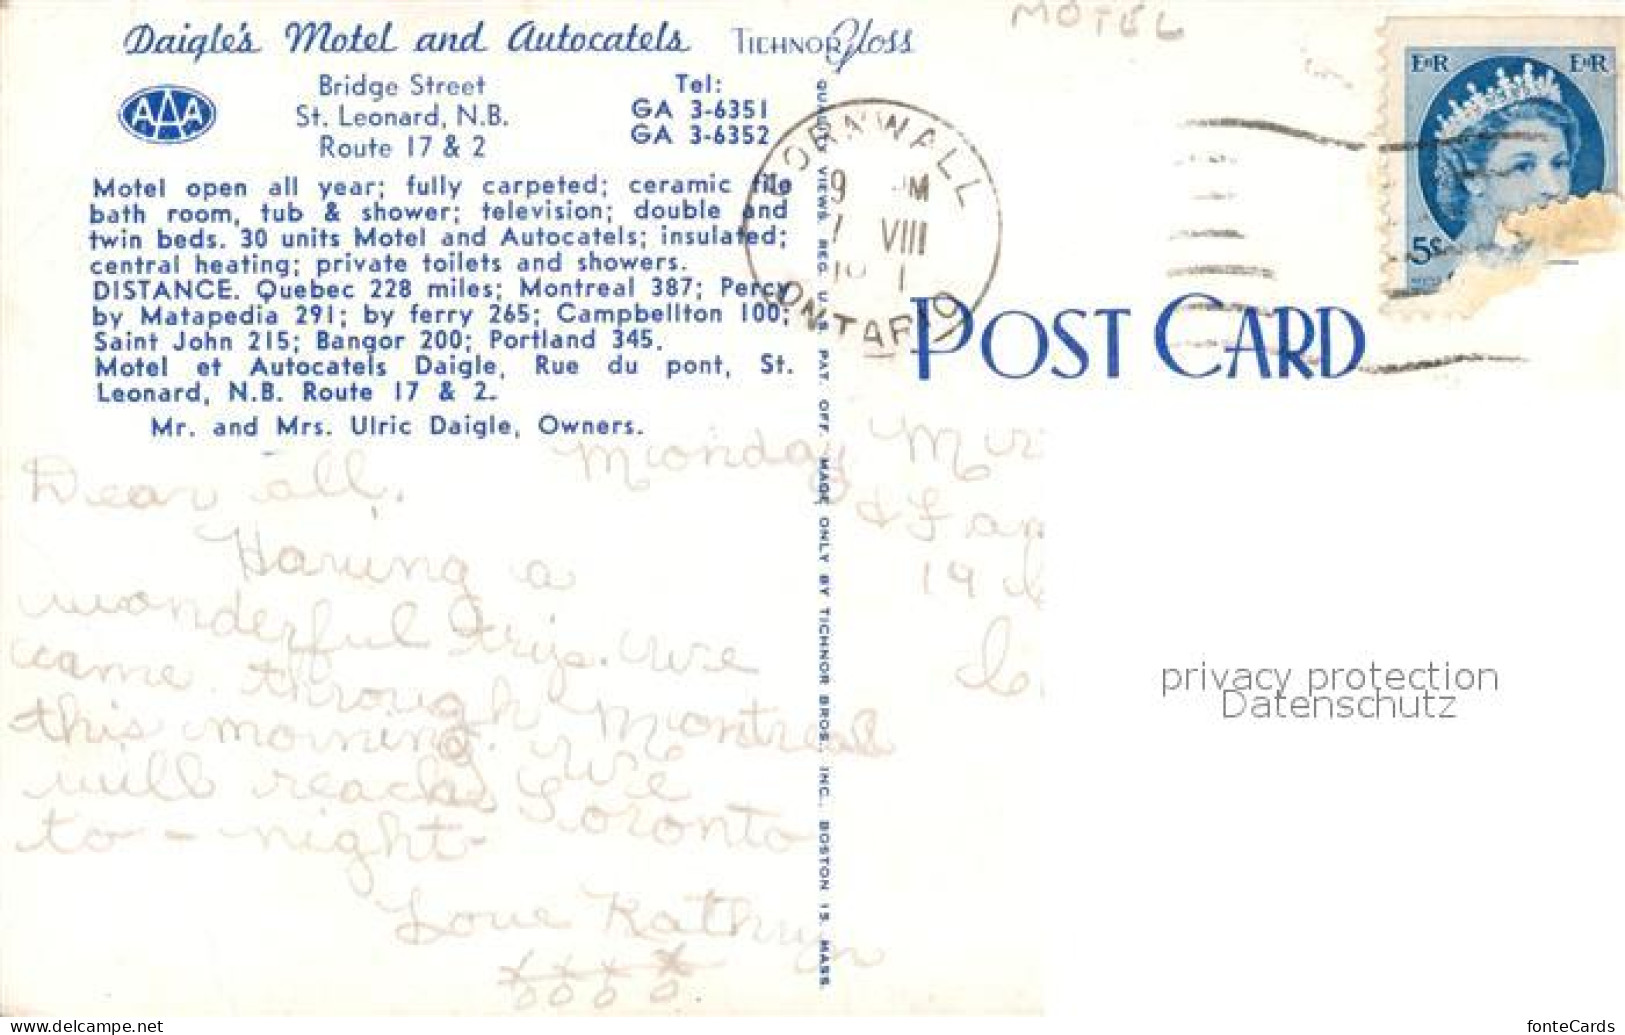 MOTEL
Daigle's Motel and Autocatels TICHNOR Gloss
AAA
Bridge Street
St. Leonard, N.B.
Route 17 & 2
Tel:
GA 3-6351
GA 3-6352
Motel open all year; fully carpeted; ceramic tile
bath room, tub & shower; television; double and
twin beds. 30 units Motel and Autocatels; insulated;
central heating; private toilets and showers.
DISTANCE. Quebec 228 miles; Montreal 387; Percy
by Matapedia 291; by ferry 265; Campbellton 100;
Saint John 215; Bangor 200; Portland 345.
Motel et Autocatels Daigle, Rue du pont, St.
Leonard, N.B. Route 17 & 2.
Mr. and Mrs. Ulric Daigle, Owners.
QUALITY VIEWS. REG. U.S. PAT. OFF. MADE ONLY BY TICHNOR BROS., INC., BOSTON 15, MASS.
CORNWALL
9 PM
VIII
ONTARIO
E II R E II R
5¢
POST CARD
Monday
Dear all,
Having a
wonderful trip. We
came through Montreal
this morning. We
will reach Toronto
to-night
Love Kathryn
xxxx
oooo.
19
privacy protection
Datenschutz
www.delcampe.net
fonteCards